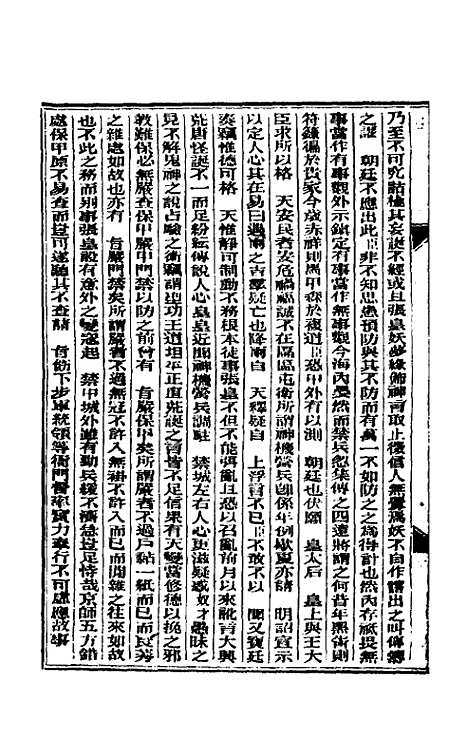 乃至不可究詰極其妄誕不經或且張皇妖夢緣飾神言取止機信人無釁焉妖不自作請出之叫傳總
之謹 朝廷不應出此臣非不知思患預防與其不防而有萬一不如防之之為得計也然內存祗畏無
事當作有事觀外示鎮定有事當作無事觀今海內晏然而禁兵忽集傳之四遠將謂之何昔年黑術則
符錄徧於貴家今歲赤祥則馬甲森於複道臣恐甲外有以測 朝廷也伏願 皇太后 皇上與王大
臣求所以格 天安民者安危禍福誠不在區區屯衛所謂神機營兵即係年例歇夏亦請 明詔宣示
以定人心其在易曰遇雨之吉羣疑亡也降雨自 天釋疑自 上浮言不已臣不敢不以 聞又寶廷
奏竊惟德可格 天惟靜可制動不務根本徒事張皇不但不能弭亂且恐以召亂前月以來訛言大興
荒唐怪誕不一而足紛紜傳說人心皇皇近聞神機營兵調駐 禁城左右人心更滋疑惑奴才愚昧之
見不解鬼神之說占驗之術竊謂道功王道坦平正直荒誕之言皆不足信果有天變當修德以挽之邪
教難保必無嚴查保甲嚴申門禁以防之前曾有 旨嚴保甲矣所謂嚴者不過戶黏一紙而已而良莠
之雜處如故也亦有 旨嚴門禁矣所謂嚴者不過無冠不許入無褂不許入而已而閒雜之往來如故
也不此之務而別事張皇設有意外之變遂起 禁甲城外雖有勤兵緩不濟急豈足恃哉京師五方錯
處保甲原不易查而豈可遂聽其不查請 旨飭下步軍統領等衙門督率實力奉行不可虛應故事